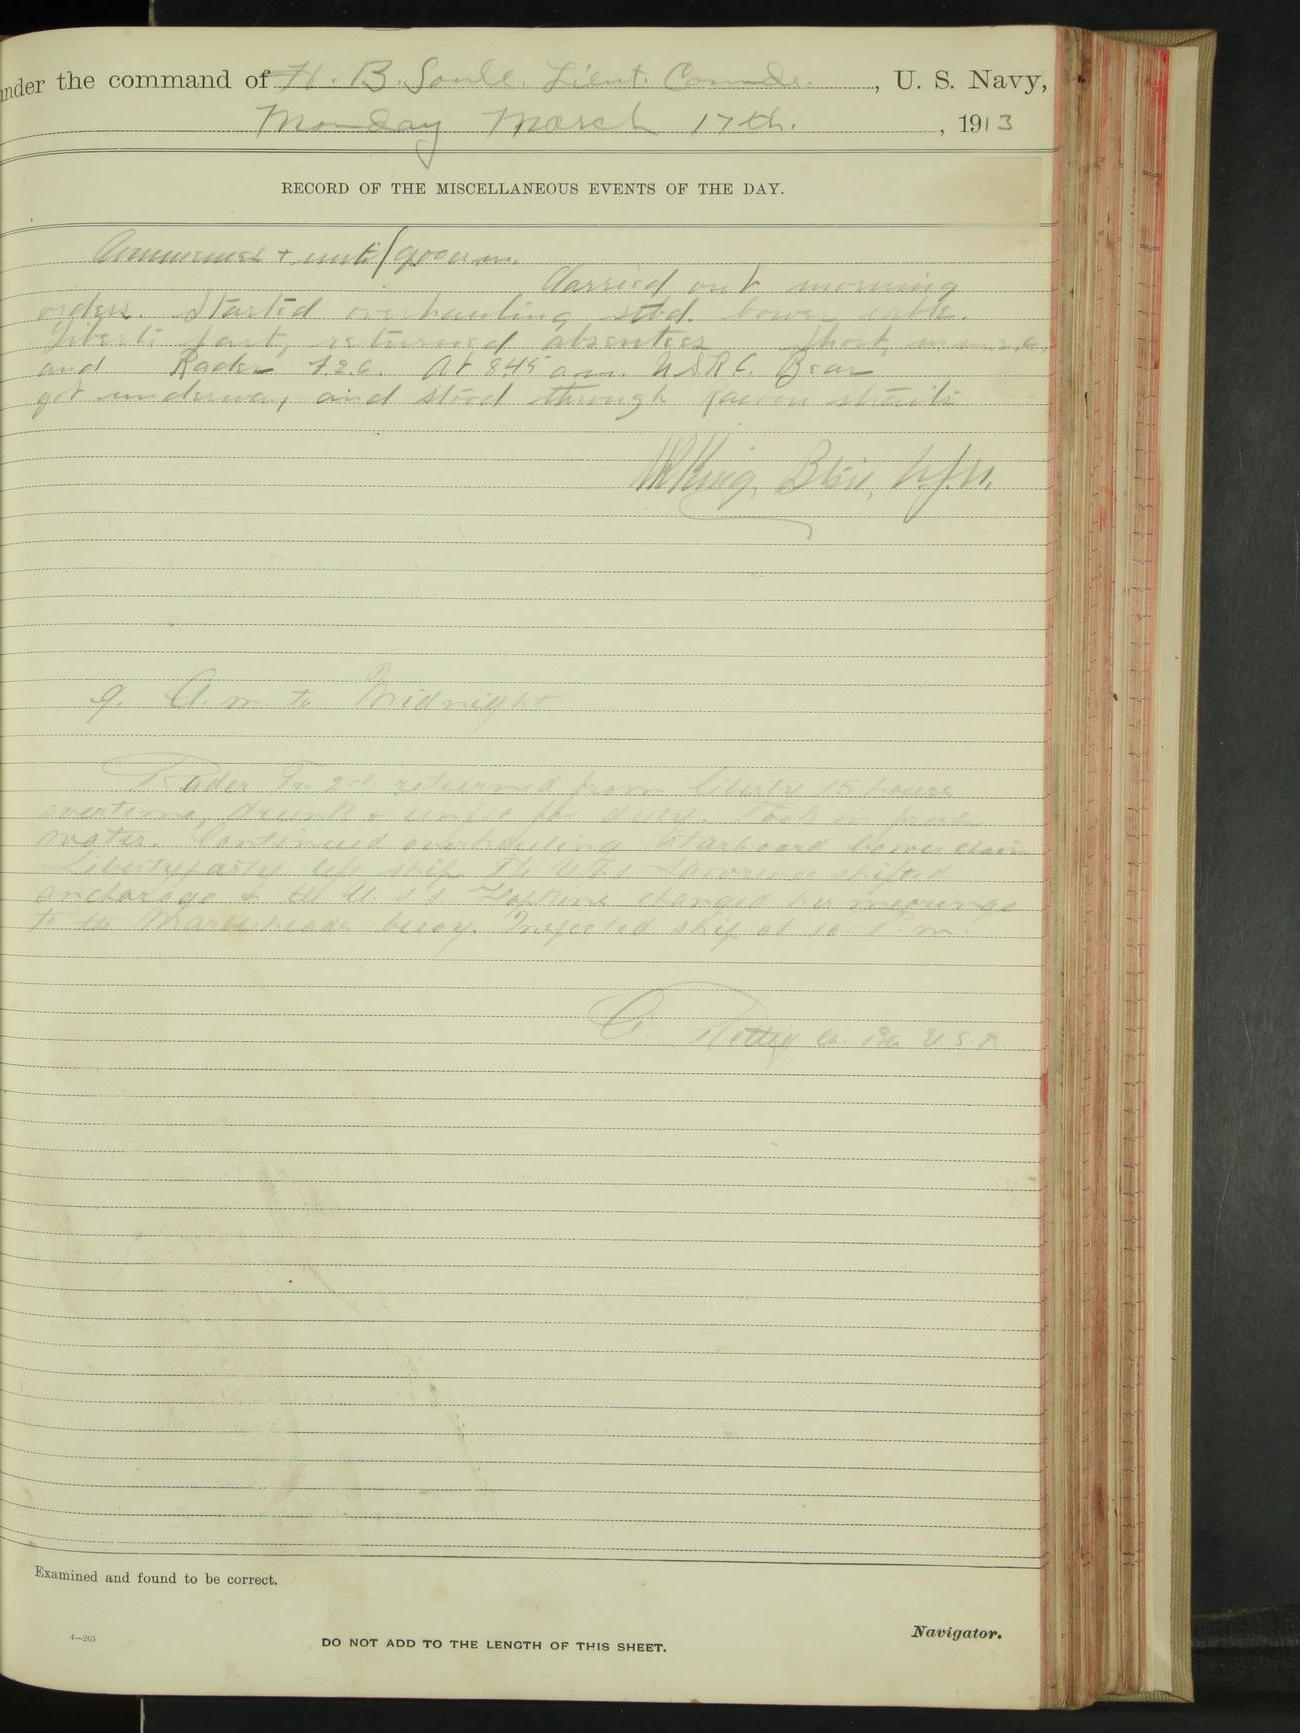 under the command of H. B. Soule. Lieut. Comdr. , U. S. Navy,
Monday March 17th. , 1913
RECORD OF THE MISCELLANEOUS EVENTS OF THE DAY.
Commences & until 9:00 a.m.
Carried out morning
orders. Started overhauling stbd. bower cable.
Liberty party returned absentees
and Rader F.2.c. At 8:45 a.m. U.S.R.C. Bear
got underway and stood through Racoon straits
King, Btsn, U.S.N.
9. A.m. to Midnight
Rader Fn. 2d. returned from liberty 15 hours
overtime, drunk & unfit for duty. Took in fresh
water. Continued overhauling Starboard bower chain
Liberty party left ship. The U.S.S. Lawrence shifted
anchorage & the U.S.S. Hopkins changed her moorings
to the buoy. Inspected ship at 10 P.m.
C. U.S.N.
Examined and found to be correct.
4—265
DO NOT ADD TO THE LENGTH OF THIS SHEET.
Navigator.